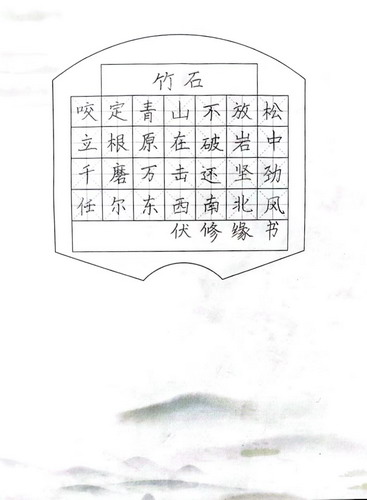 竹石
咬定青山不放松
立根原在破岩中
千磨万击还坚劲
任尔东西南北风
伏修缘书